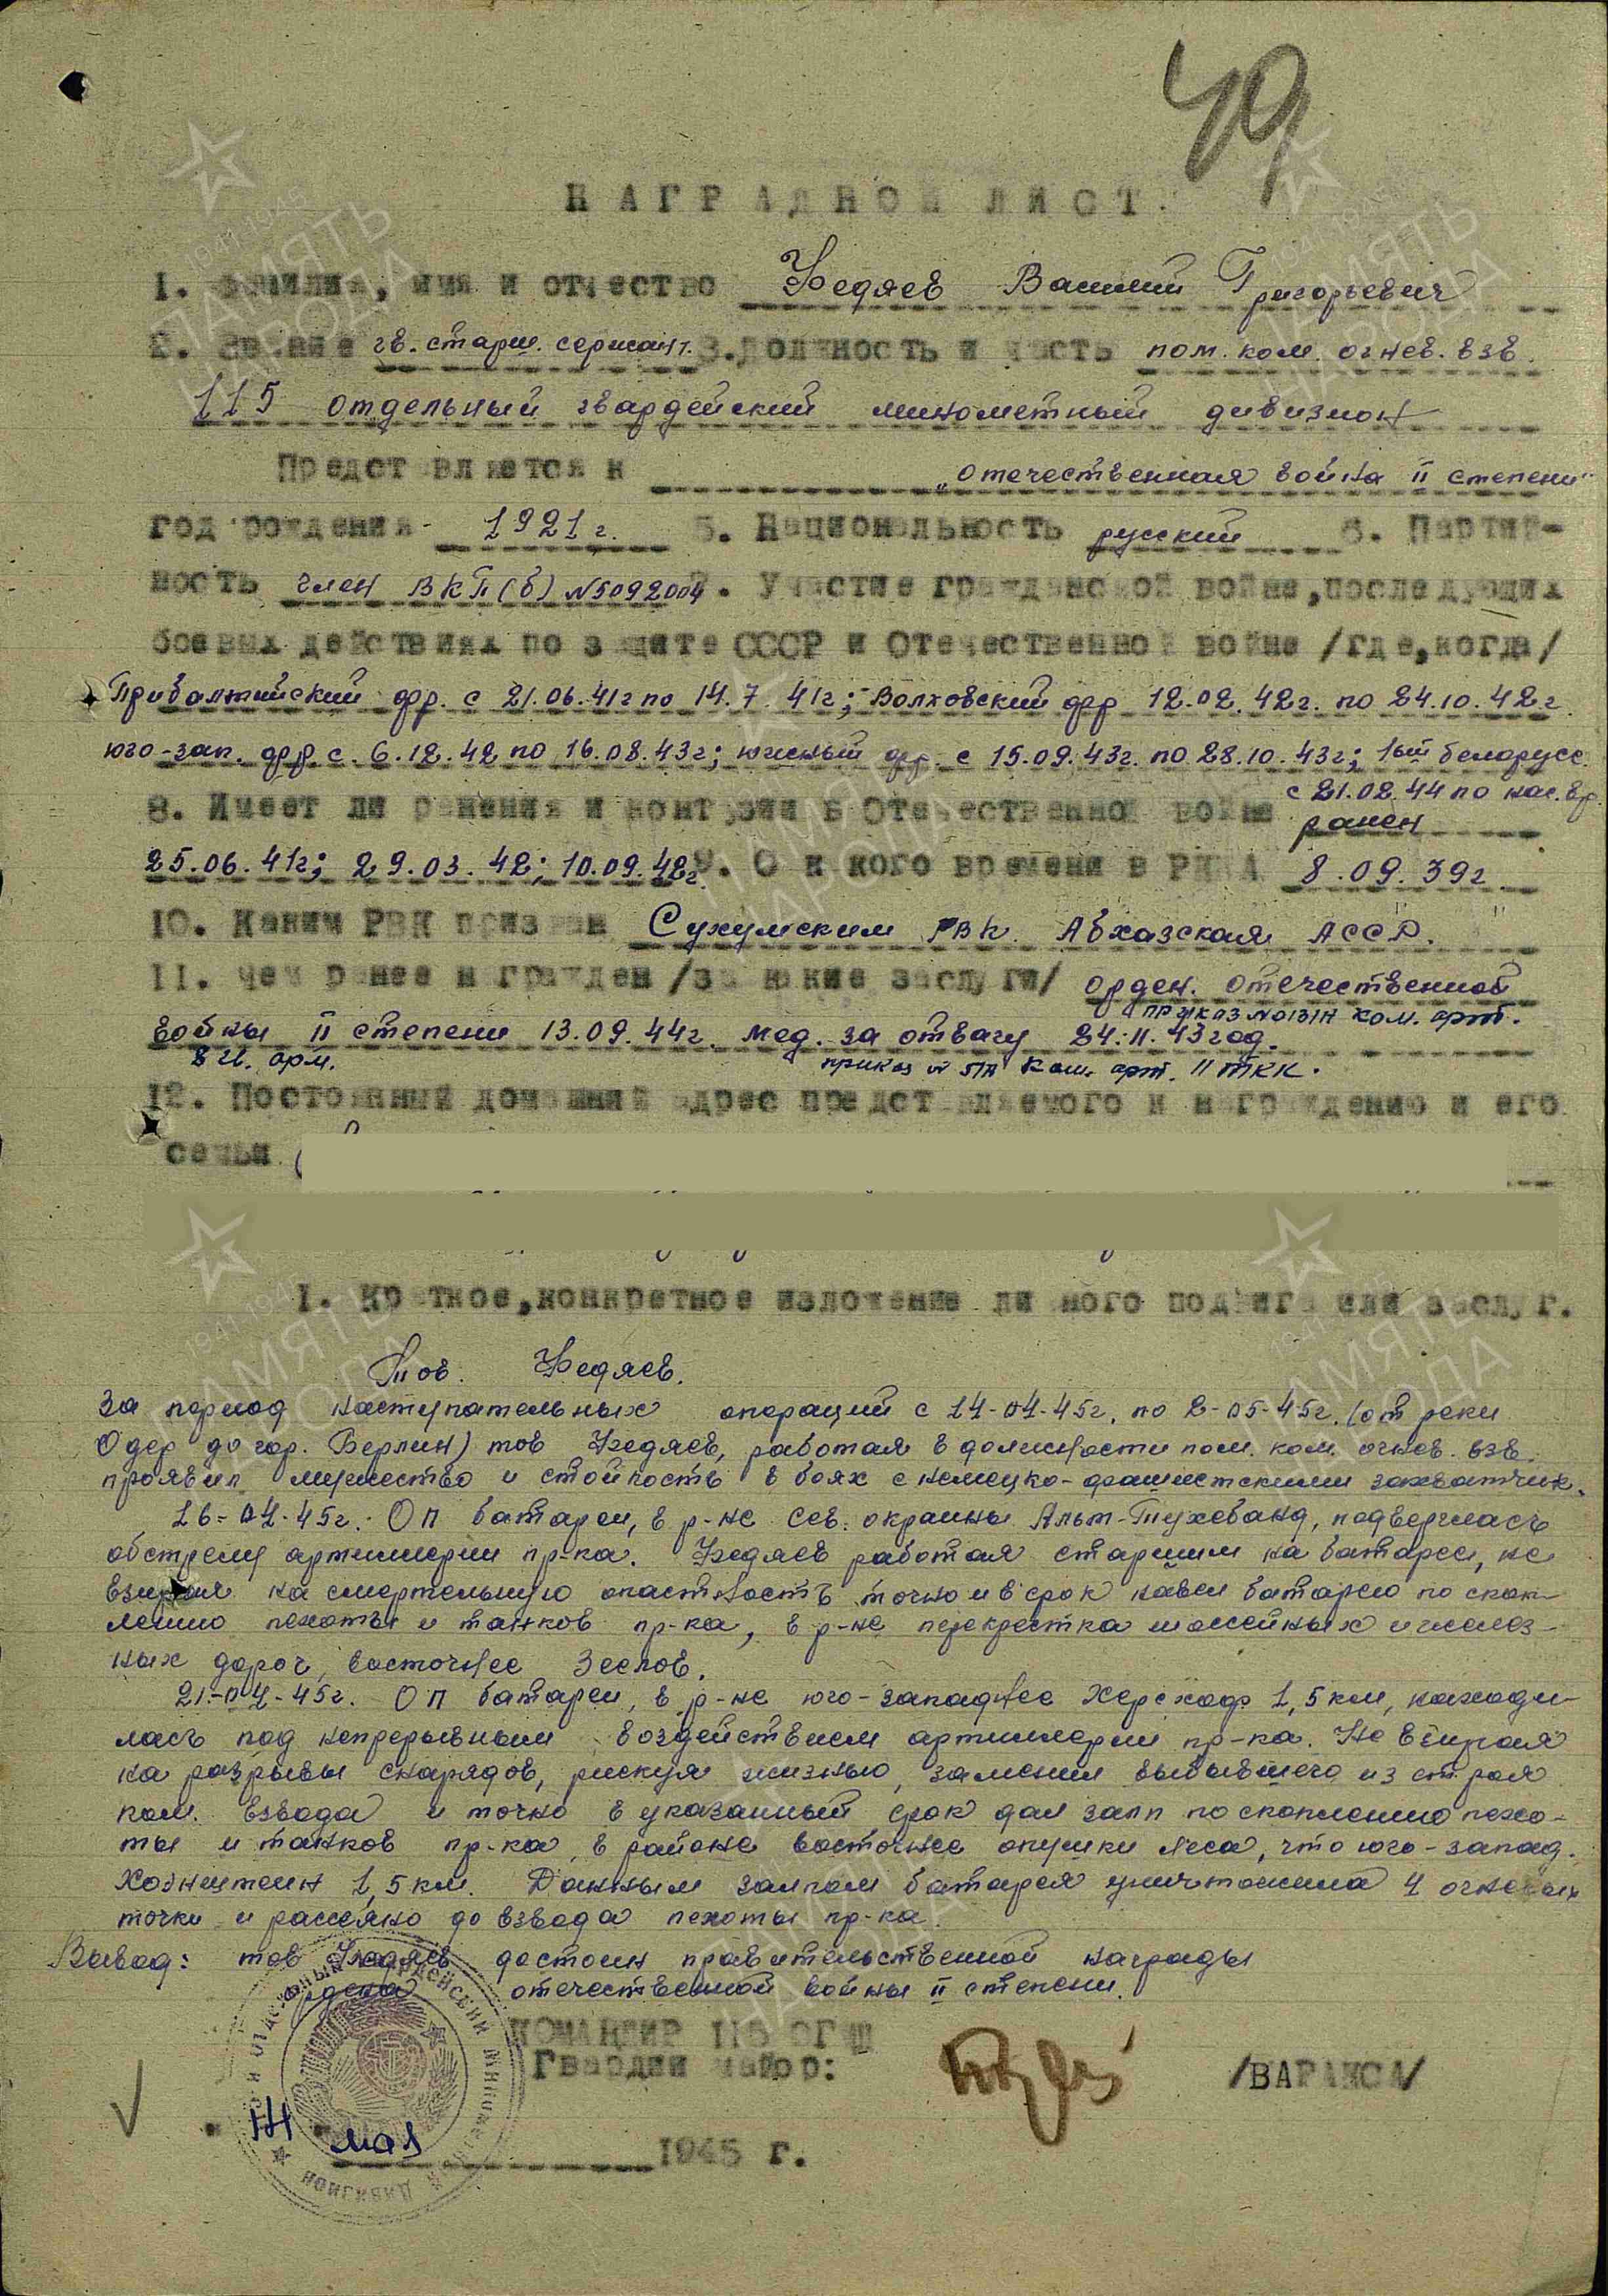 49
НАГРАДНОЙ ЛИСТ.
1. Фамилия, имя и отчество Федяев Василий Григорьевич
2. Звание гв. старш. сержант. 3. Должность и часть пом. ком. огнев. взв.
115 отдельный гвардейский минометный дивизион
Представляется к „Отечественная война II степени"
год рождения 1921 г. 5. Национальность русский 6. Партий-
ность член ВКП(б) №5092004 7. Участие гражданской войне, последующих
боевых действиях по защите СССР и Отечественной войне /где, когда/
Прибалтийский фр. с 21.06.41г по 14.7.41г; Волховский фр 12.02.42г. по 24.10.42г.
юго-зап. фр. с. 6.12.42 по 16.08.43г; южный фр. с 15.09.43г. по 28.10.43г; 1ый белорусс.
с 21.02.44 по нас. вр.
8. Имеет ли ранения и контузии в Отечественной войне ранен
25.06.41г; 29.03.42; 10.09.42г. 9. С какого времени в РККА 8.09.39г
10. Каким РВК призван Сухумским РВК. Абхазская АССР.
11. Чем ранее награжден /за какие заслуги/ орден. Отечественной
приказ №0131н ком. арт.
войны II степени 13.09.44г. мед. за отвагу 24.11.43год.
8 гв. арм. приказ № 5/н ком. арт. II ТКК.
12. Постоянный домашний адрес представляемого к награждению и его
семьи
1. Краткое, конкретное изложение личного подвига или заслуг.
Тов. Федяев.
За период наступательных операций с 14-04-45г. по 2-05-45г. (от реки
Одер до гор. Берлин) тов Федяев, работая в должности пом. ком. огнев. взв.
проявил мужество и стойкость в боях с немецко-фашистскими захватчик.
16-04-45г. ОП батареи, в р-не сев. окраины Альт-Тухебанд, подверглась
обстрелу артиллерии пр-ка. Федяев работая старшим на батарее, не
взирая на смертельную опастность точно и в срок навел батарею по скоп-
лению пехоты и танков пр-ка, в р-не перекрестка шоссейных и желез-
ных дорог, восточнее Зеелов.
21-04-45г. ОП батареи, в р-не юго-западнее Херсходф 1,5 км, находи-
лась под непрерывным воздействием артиллерии пр-ка. Не взирая
на разрывы снарядов, рискуя жизнью, заменил выбывшего из строя
ком. взвода и точно в указанный срок дал залп по скоплению пехо-
ты и танков пр-ка, в районе восточнее опушки леса, что юго-запад.
1,5 км. Данным залпом батарея уничтожила 4 огневых
точки и рассеяно до взвода пехоты пр-ка.
Вывод: тов Федяев достоин правительственной награды
ордена отечественной войны II степени.
КОМАНДИР 115 ОГМД
Гвардии майор: /ВАРАКСА/
14 мая 1945 г.